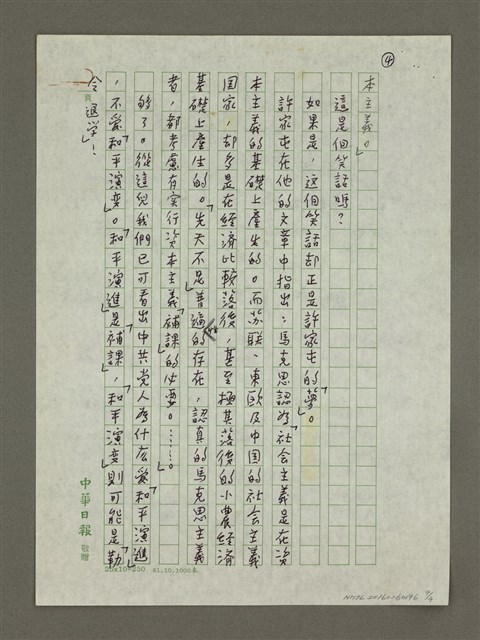 ④
本主義。」
這是個笑話嗎?
如果是,这個笑話却正是許家屯的「夢」。
許家屯在他的文章中指出:「馬克思認為社会主義是在資
本主義的基礎上產生的。而苏联、東歐及中国的社会主義
国家,却多是在経済比較落後,甚至極其落後的小農経済
基礎上產生的。」「先天不足」普遍的存在,認真的馬克思主義
者,都考慮有実行资本主義「補課」的必要。……。
够了。從這兒我們已可看出中共党人為什么愛「和平演進」
,不爱「和平演変」。「和平演進」是「補課」,「和平演变」則可能是「勒
令退学」!
中華日報 敬贈
25×10=250 81.10.1000本
NMTL 20160260196 4/4